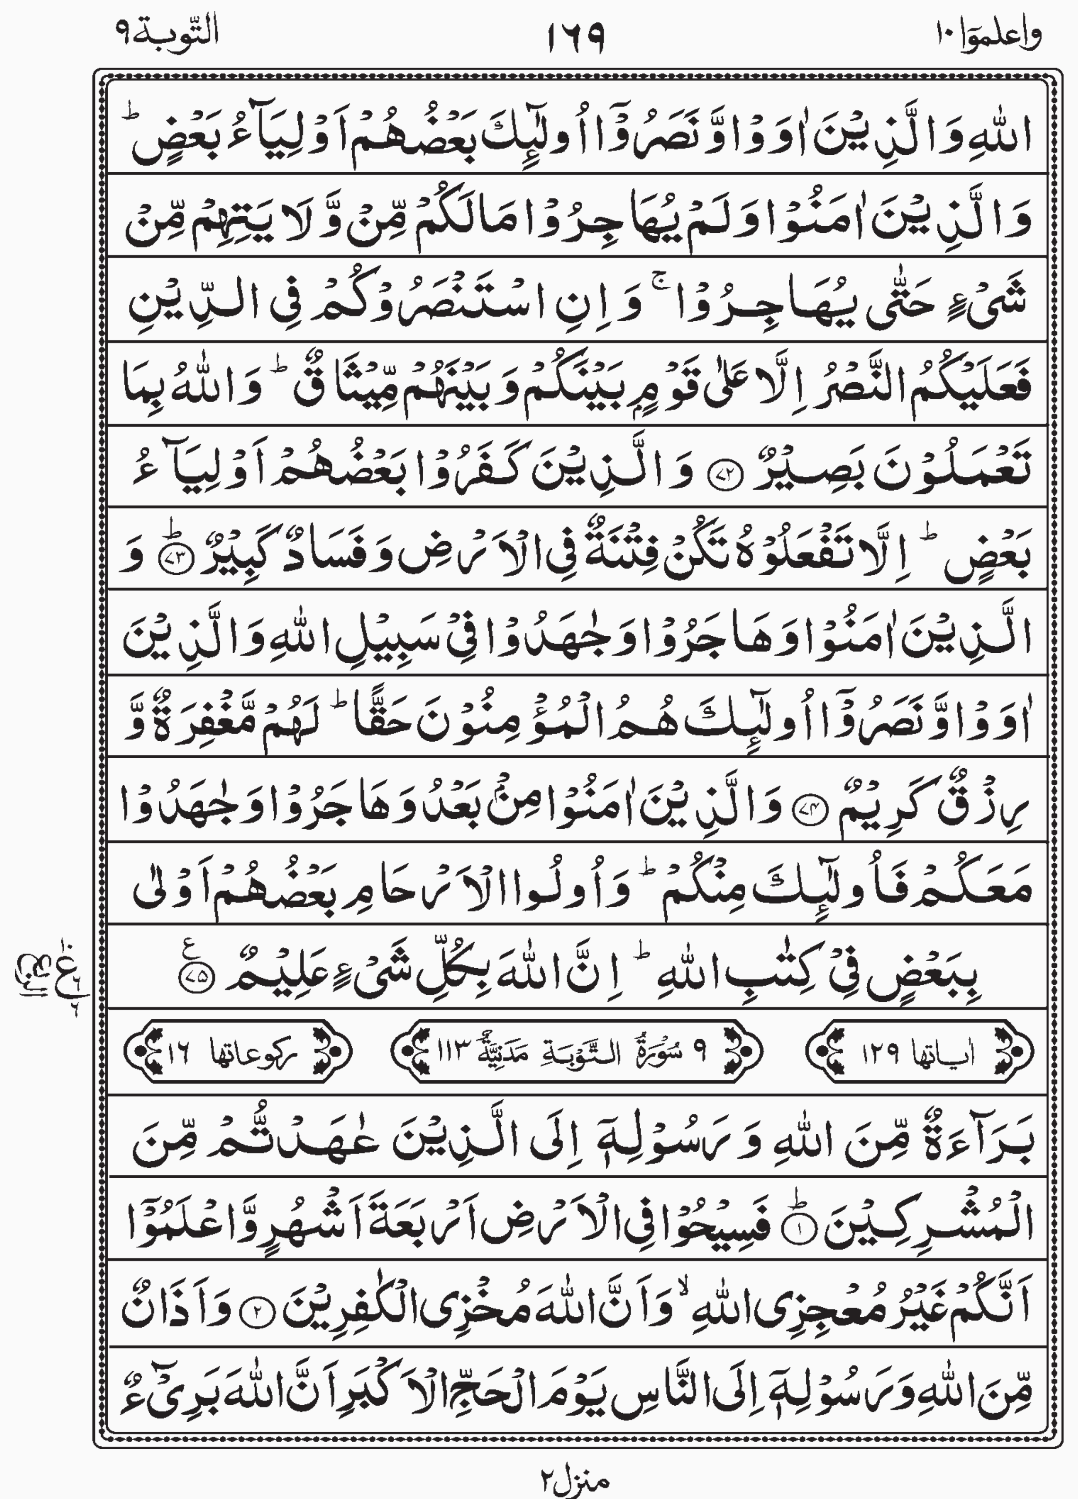 واعلموٓا ١٠ ١٦٩ التّوبة ٩
اللّٰهِ وَالَّذِيْنَ اٰوَوْا وَّنَصَرُوْٓا اُولٰٓئِكَ بَعْضُهُمْ اَوْلِيَآءُ بَعْضٍ ؕ
وَالَّذِيْنَ اٰمَنُوْا وَلَمْ يُهَاجِرُوْا مَا لَكُمْ مِّنْ وَّلَا يَتِهِمْ مِّنْ
شَىْءٍ حَتّٰى يُهَاجِرُوْا ۚ وَاِنِ اسْتَنْصَرُوْكُمْ فِى الدِّيْنِ
فَعَلَيْكُمُ النَّصْرُ اِلَّا عَلٰى قَوْمٍۭ بَيْنَكُمْ وَبَيْنَهُمْ مِّيْثَاقٌ ؕ وَاللّٰهُ بِمَا
تَعْمَلُوْنَ بَصِيْرٌ ﴿۷۲﴾ وَالَّذِيْنَ كَفَرُوْا بَعْضُهُمْ اَوْلِيَآءُ
بَعْضٍ ؕ اِلَّا تَفْعَلُوْهُ تَكُنْ فِتْنَةٌ فِى الْاَرْضِ وَفَسَادٌ كَبِيْرٌ ؕ﴿۷۳﴾ وَ
الَّذِيْنَ اٰمَنُوْا وَهَاجَرُوْا وَجٰهَدُوْا فِىْ سَبِيْلِ اللّٰهِ وَالَّذِيْنَ
اٰوَوْا وَّنَصَرُوْٓا اُولٰٓئِكَ هُمُ الْمُؤْمِنُوْنَ حَقًّا ؕ لَهُمْ مَّغْفِرَةٌ وَّ
رِزْقٌ كَرِيْمٌ ﴿۷۴﴾ وَالَّذِيْنَ اٰمَنُوْا مِنْۢ بَعْدُ وَهَاجَرُوْا وَجٰهَدُوْا
مَعَكُمْ فَاُولٰٓئِكَ مِنْكُمْ ؕ وَاُولُوا الْاَرْحَامِ بَعْضُهُمْ اَوْلٰى
بِبَعْضٍ فِىْ كِتٰبِ اللّٰهِ ؕ اِنَّ اللّٰهَ بِكُلِّ شَىْءٍ عَلِيْمٌ ﴿۷۵﴾ ع
اٰياتها ١٢٩ ٩ سُوْرَةُ التَّوْبَةِ مَدَنِيَّةٌ ١١٣ ركوعاتها ١٦
بَرَآءَةٌ مِّنَ اللّٰهِ وَرَسُوْلِهٖٓ اِلَى الَّذِيْنَ عٰهَدْتُّمْ مِّنَ
الْمُشْرِكِيْنَ ؕ﴿۱﴾ فَسِيْحُوْا فِى الْاَرْضِ اَرْبَعَةَ اَشْهُرٍ وَّاعْلَمُوْٓا
اَنَّكُمْ غَيْرُ مُعْجِزِى اللّٰهِ ۙ وَاَنَّ اللّٰهَ مُخْزِى الْكٰفِرِيْنَ ﴿۲﴾ وَاَذَانٌ
مِّنَ اللّٰهِ وَرَسُوْلِهٖٓ اِلَى النَّاسِ يَوْمَ الْحَجِّ الْاَكْبَرِ اَنَّ اللّٰهَ بَرِىْٓءٌ
منزل ٢